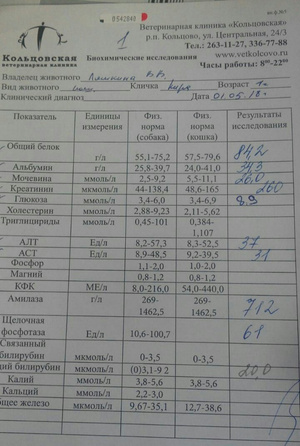 0542848
1
Кольцовская
ветеринарная клиника
Ветеринарная клиника «Кольцовская»
р.п. Кольцово, ул. Центральная, 24/3
Тел.: 263-11-27, 336-77-88
www.vetkolcovo.ru
Часы работы: 8-00-22-00
Биохимические исследования
Владелец животного
Вид животного Кличка Возраст
Клинический диагноз Дата 01.05.18г.
Показатель Единицы измерения Физ. норма (собака) Физ. норма (кошка) Результаты исследования
Общий белок г/л 55,1-75,2 57,5-79,6 84,2
Альбумин г/л 25,8-39,7 24,0-41,0
Мочевина ммоль/л 2,5-9,2 5,5-11,1
Креатинин мкмоль/л 44-138,4 48,6-165 260
Глюкоза ммоль/л 3,4-6,0 3,4-6,9
Холестерин ммоль/л 2,88-9,23 2,11-5,62
Триглицириды ммоль/л 0,45-101 0,384-1,107
АЛТ Ед/л 8,2-57,3 8,3-52,5 37
АСТ Ед/л 8,9-48,5 9,2-39,5 31
Фосфор 1,1-2,0 1,0-2,0
Магний 0,8-1,2 0,8-1,2
КФК МЕ/л 8,0-216,0 54,0-440,0
Амилаза г/л 269-1462,5 269-1462,5 712
Щелочная фосфотаза Ед/л 10,6-100,7 61
Связанный билирубин мкмоль/л 0-3,5 0-3,5
билирубин мкмоль/л (0)3,1-9 2
Калий ммоль/л 3,8-5,6 3,8-5,6
Кальций ммоль/л 2,2-3,0
железо мкмоль/л 9,67-35,1 12,7-38,6